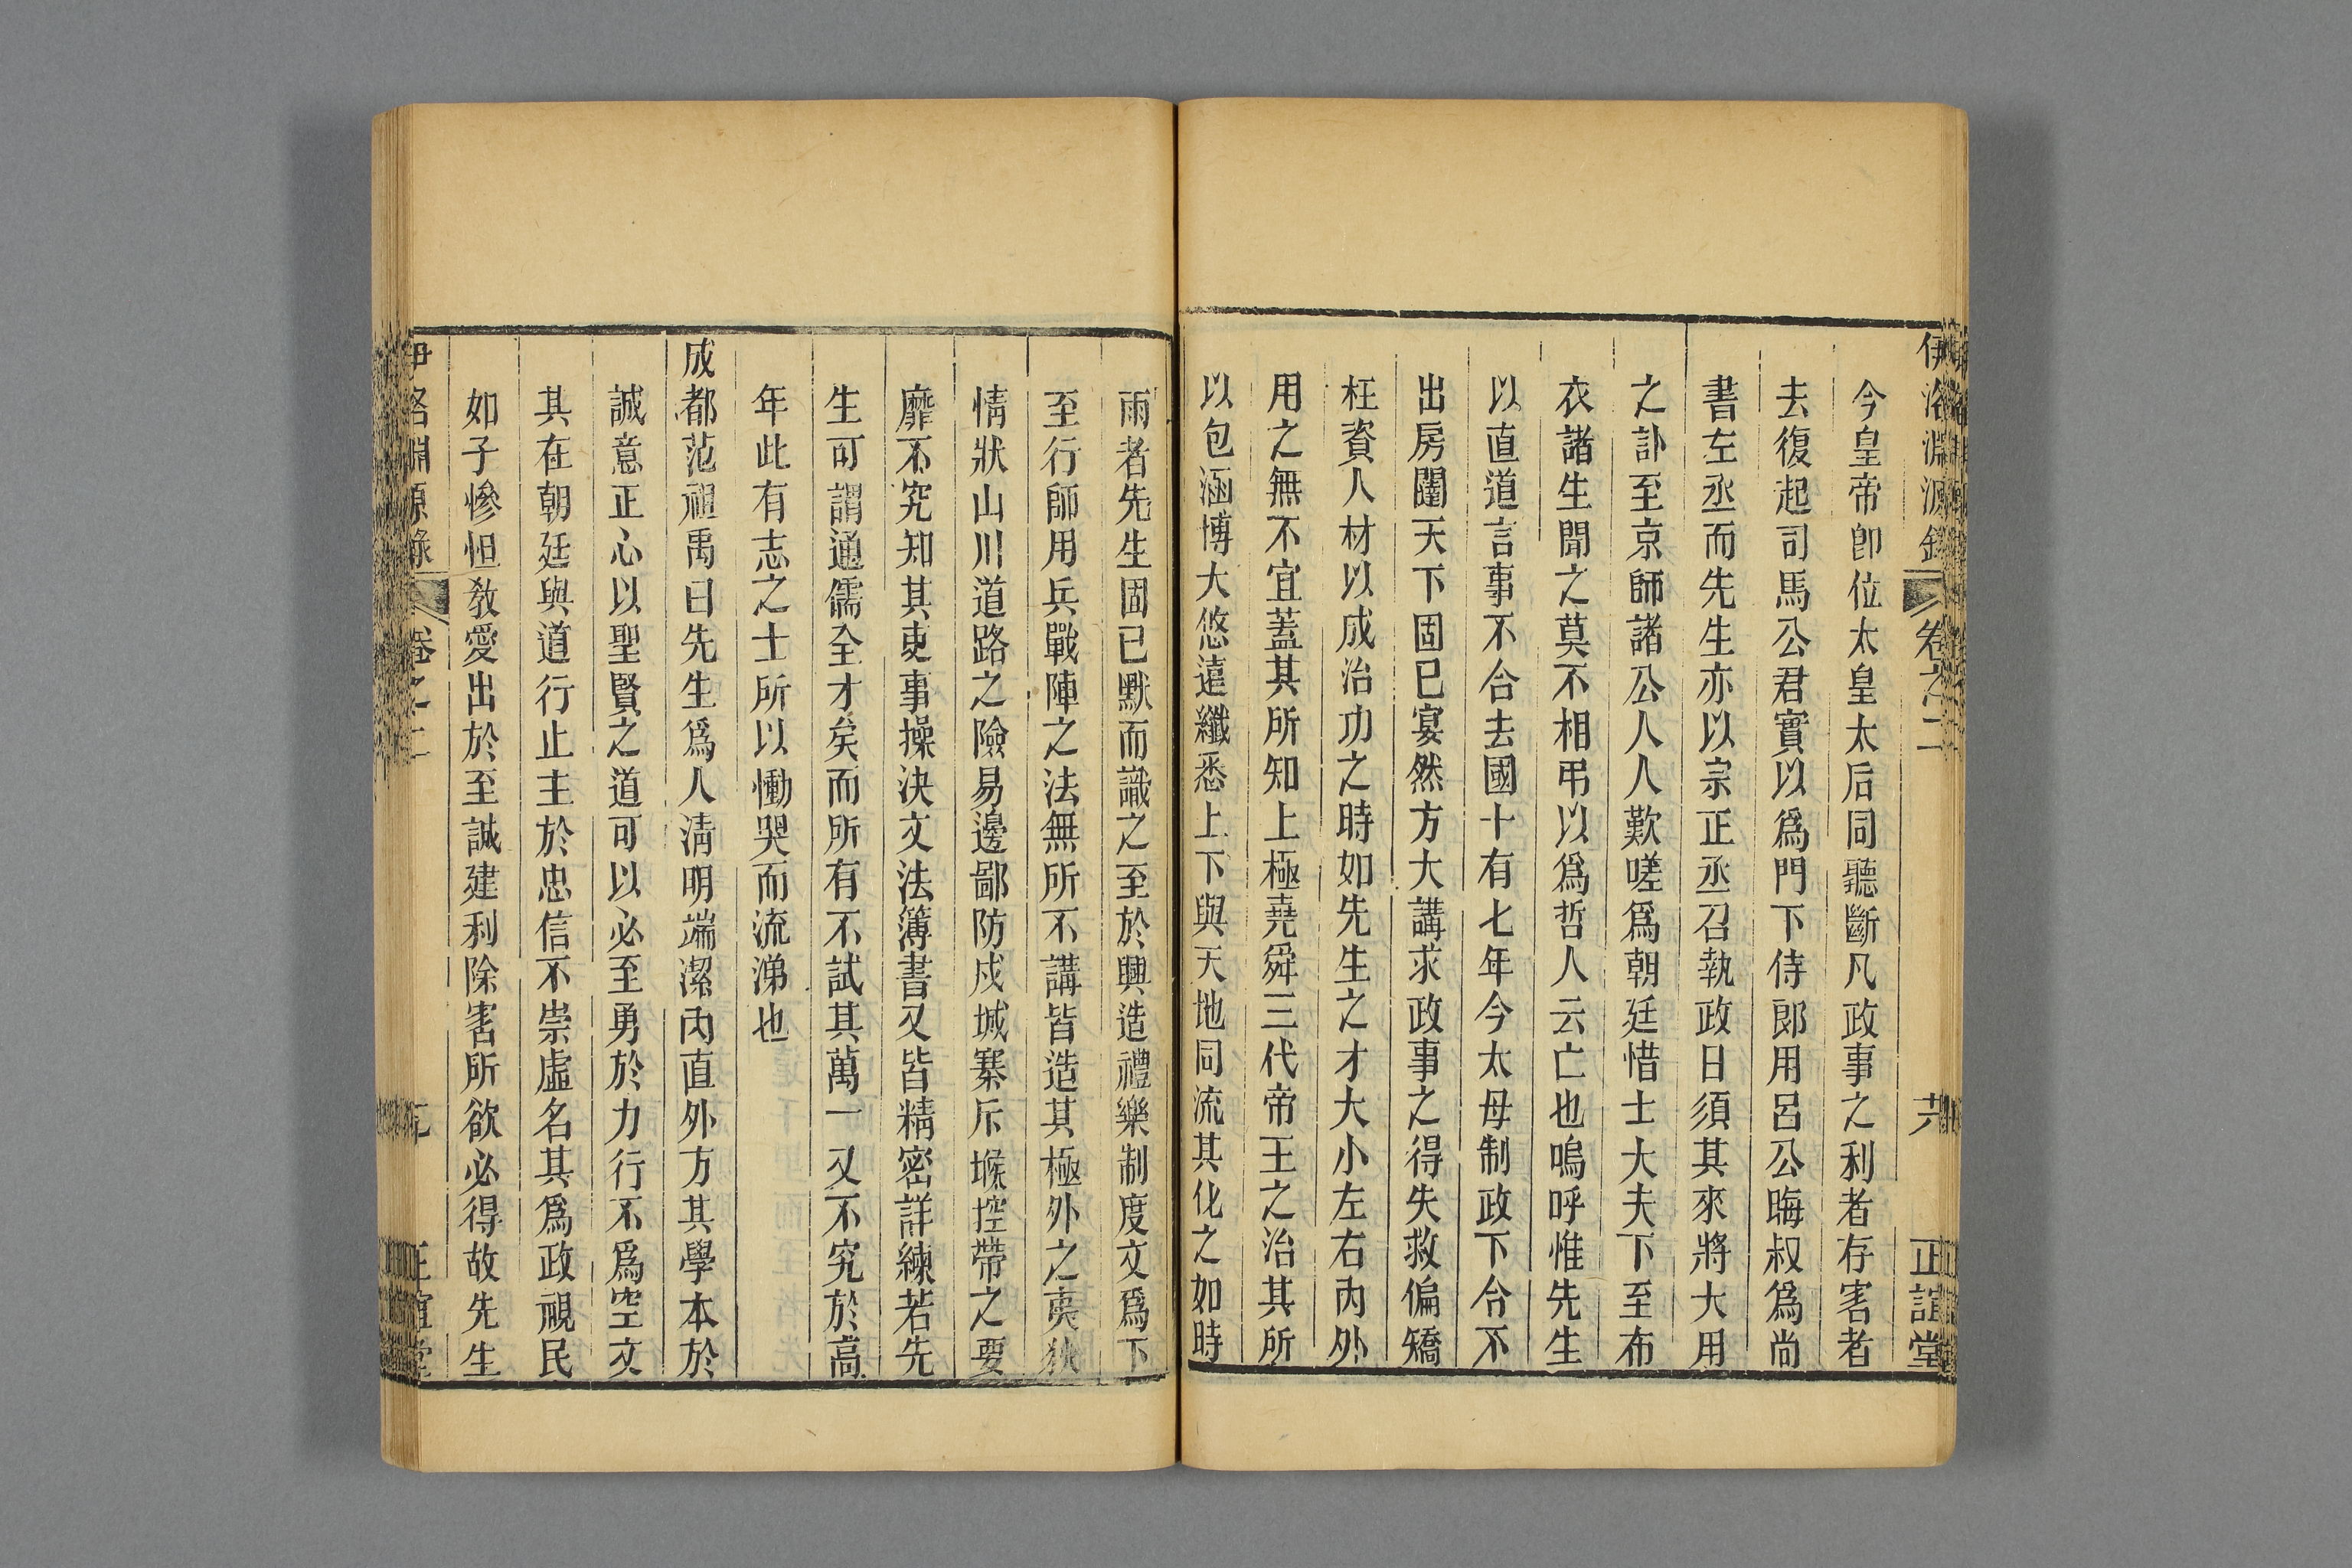 伊洛淵源錄 卷之二 正誼堂
今皇帝卽位太皇太后同聽斷凡政事之利者存害者
去復起司馬公君實以爲門下侍郎用呂公晦叔爲尚
書左丞而先生亦以宗正丞召執政日須其來將大用
之訃至京師諸公人人歎嗟爲朝廷惜士大夫下至布
衣諸生聞之莫不相弔以爲哲人云亡也嗚呼惟先生
以直道言事不合去國十有七年今太母制政下令不
出房闥天下固已宴然方大講求政事之得失救偏矯
枉資人材以成治功之時如先生之才大小左右內外
用之無不宜蓋其所知上極堯舜三代帝王之治其所
以包涵博大悠遠纖悉上下與天地同流其化之如時
雨者先生固已默而識之至於興造禮樂制度文爲下
至行師用兵戰陣之法無所不講皆造其極外之夷狄
情狀山川道路之險易邊鄙防戍城寨斥堠控帶之要
靡不究知其吏事操決文法簿書又皆精密詳練若先
生可謂通儒全才矣而所有不試其萬一又不究於高
年此有志之士所以慟哭而流涕也
成都范祖禹曰先生爲人淸明端潔內直外方其學本於
誠意正心以聖賢之道可以必至勇於力行不爲空文
其在朝廷與道行止主於忠信不崇虛名其爲政視民
如子慘怛敎愛出於至誠建利除害所欲必得故先生
伊洛淵源錄 卷之二 正誼堂